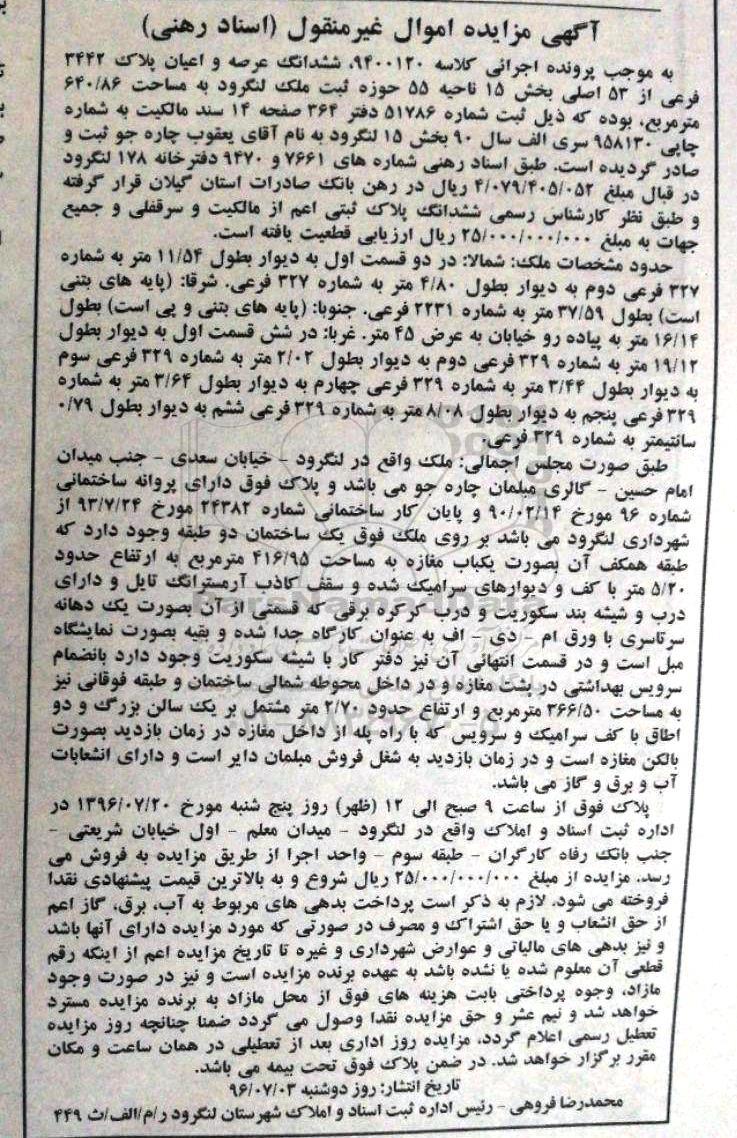 آگهی مزایده اموال غیرمنقول (اسناد رهنی)
به موجب پرونده اجرائی کلاسه ۹۴۰۰۱۲۰، ششدانگ عرصه و اعیان پلاک ۳۴۴۲
فرعی از ۵۳ اصلی بخش ۱۵ ناحیه ۵۵ حوزه ثبت ملک لنگرود به مساحت ۶۴۰/۸۶
مترمربع، بوده که ذیل ثبت شماره ۵۱۷۸۶ دفتر ۳۶۴ صفحه ۱۴ سند مالکیت به شماره
چاپی ۹۵۸۱۳۰ سری الف سال ۹۰ بخش ۱۵ لنگرود به نام آقای یعقوب چاره جو ثبت و
صادر گردیده است. طبق اسناد رهنی شماره های ۷۶۶۱ و ۹۴۷۰ دفترخانه ۱۷۸ لنگرود
در قبال مبلغ ۴/۰۷۹/۴۰۵/۰۵۲ ریال در رهن بانک صادرات استان گیلان قرار گرفته
و طبق نظر کارشناس رسمی ششدانگ پلاک ثبتی اعم از مالکیت و سرقفلی و جمیع
جهات به مبلغ ۲۵/۰۰۰/۰۰۰/۰۰۰ ریال ارزیابی قطعیت یافته است.
حدود مشخصات ملک: شمالا: در دو قسمت اول به دیوار بطول ۱۱/۵۴ متر به شماره
۳۲۷ فرعی دوم به دیوار بطول ۴/۸۰ متر به شماره ۳۲۷ فرعی. شرقا: (پایه های بتنی
است) بطول ۳۷/۵۹ متر به شماره ۲۲۳۱ فرعی. جنوبا: (پایه های بتنی و پی است) بطول
۱۶/۱۴ متر به پیاده رو خیابان به عرض ۴۵ متر. غربا: در شش قسمت اول به دیوار بطول
۱۹/۱۲ متر به شماره ۳۲۹ فرعی دوم به دیوار بطول ۲/۰۲ متر به شماره ۳۲۹ فرعی سوم
به دیوار بطول ۳/۴۴ متر به شماره ۳۲۹ فرعی چهارم به دیوار بطول ۳/۶۴ متر به شماره
۳۲۹ فرعی پنجم به دیوار بطول ۸/۰۸ متر به شماره ۳۲۹ فرعی ششم به دیوار بطول ۰/۷۹
سانتیمتر به شماره ۳۲۹ فرعی.
طبق صورت مجلس اجمالی: ملک واقع در لنگرود - خیابان سعدی - جنب میدان
امام حسین - گالری مبلمان چاره جو می باشد و پلاک فوق دارای پروانه ساختمانی
شماره ۹۶ مورخ ۹۰/۰۲/۱۴ و پایان کار ساختمانی شماره ۲۴۳۸۲ مورخ ۹۳/۷/۲۴ از
شهرداری لنگرود می باشد بر روی ملک فوق یک ساختمان دو طبقه وجود دارد که
طبقه همکف آن بصورت یکباب مغازه به مساحت ۴۱۶/۹۵ مترمربع به ارتفاع حدود
۵/۲۰ متر با کف و دیوارهای سرامیک شده و سقف کاذب آرمسترانگ تایل و دارای
درب و شیشه بند سکوریت و درب کرکره برقی که قسمتی از آن بصورت یک دهانه
سرتاسری با ورق ام - دی - اف به عنوان کارگاه جدا شده و بقیه بصورت نمایشگاه
مبل است و در قسمت انتهائی آن نیز دفتر کار با شیشه سکوریت وجود دارد بانضمام
سرویس بهداشتی در پشت مغازه و در داخل محوطه شمالی ساختمان و طبقه فوقانی نیز
به مساحت ۳۶۶/۵۰ مترمربع و ارتفاع حدود ۲/۷۰ متر مشتمل بر یک سالن بزرگ و دو
اطاق با کف سرامیک و سرویس که با راه پله از داخل مغازه در زمان بازدید بصورت
بالکن مغازه است و در زمان بازدید به شغل فروش مبلمان دایر است و دارای انشعابات
آب و برق و گاز می باشد.
پلاک فوق از ساعت ۹ صبح الی ۱۲ (ظهر) روز پنج شنبه مورخ ۱۳۹۶/۰۷/۲۰ در
اداره ثبت اسناد و املاک واقع در لنگرود - میدان معلم - اول خیابان شریعتی -
جنب بانک رفاه کارگران - طبقه سوم - واحد اجرا از طریق مزایده به فروش می
رسد. مزایده از مبلغ ۲۵/۰۰۰/۰۰۰/۰۰۰ ریال شروع و به بالاترین قیمت پیشنهادی نقدا
فروخته می شود. لازم به ذکر است پرداخت بدهی های مربوط به آب، برق، گاز اعم
از حق انشعاب و یا حق اشتراک و مصرف در صورتی که مورد مزایده دارای آنها باشد
و نیز بدهی های مالیاتی و عوارض شهرداری و غیره تا تاریخ مزایده اعم از اینکه رقم
قطعی آن معلوم شده یا نشده باشد به عهده برنده مزایده است و نیز در صورت وجود
مازاد، وجوه پرداختی بابت هزینه های فوق از محل مازاد به برنده مزایده مسترد
خواهد شد و نیم عشر و حق مزایده نقدا وصول می گردد ضمنا چنانچه روز مزایده
تعطیل رسمی اعلام گردد، مزایده روز اداری بعد از تعطیلی در همان ساعت و مکان
مقرر برگزار خواهد شد. در ضمن پلاک فوق تحت بیمه می باشد.
تاریخ انتشار: روز دوشنبه ۹۶/۰۷/۰۳
محمدرضا فروهی - رئیس اداره ثبت اسناد و املاک شهرستان لنگرود ر/م/الف/ث ۴۴۹